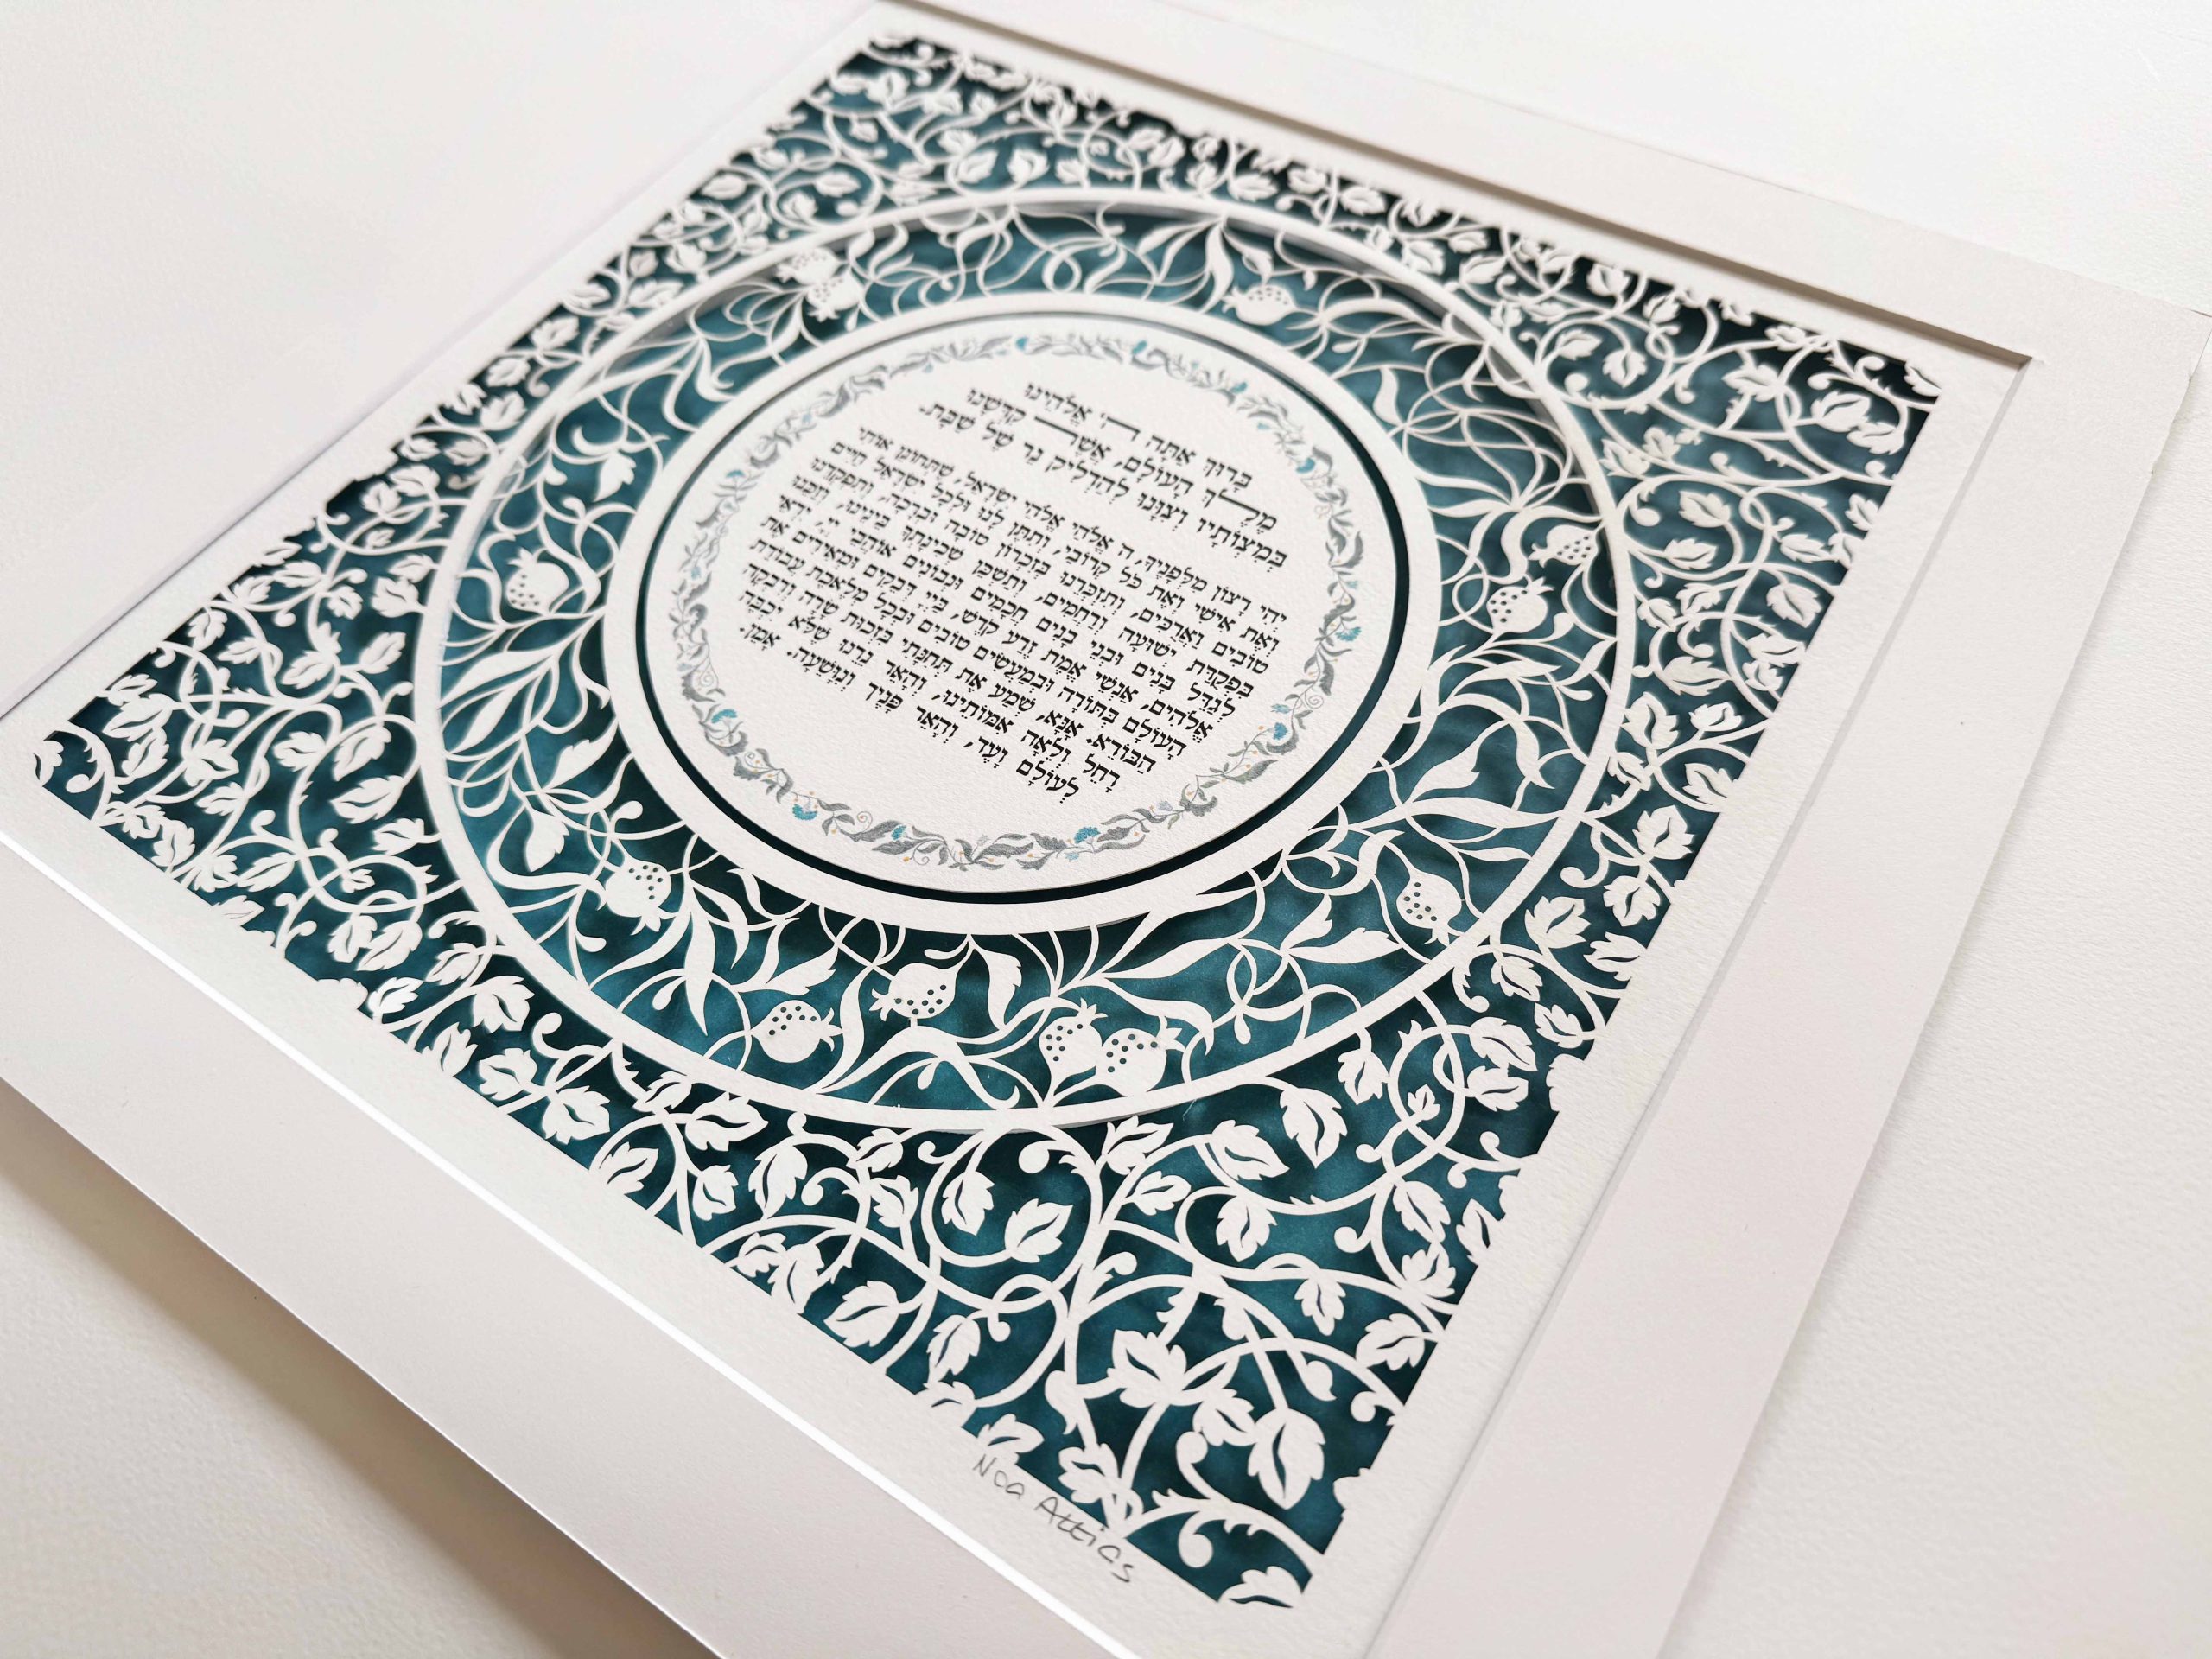 בָּרוּךְ אַתָּה ה׳ אֱלֹהֵינוּ
מֶלֶךְ הָעוֹלָם, אֲשֶׁר קִדְּשָׁנוּ
בְּמִצְוֹתָיו וְצִוָּנוּ לְהַדְלִיק נֵר שֶׁל שַׁבָּת.
יְהִי רָצוֹן מִלְּפָנֶיךָ, ה אֱלֹהַי אֱלֹהֵי יִשְׂרָאֵל, שֶׁתְּחוֹנֵן אוֹתִי
וְאֶת אִישִׁי וְאֶת כָּל קְרוֹבַי, וְתִתֵּן לָנוּ וּלְכָל יִשְׂרָאֵל חַיִּים
טוֹבִים וַאֲרֻכִּים, וְתִזְכְּרֵנוּ בְּזִכְרוֹן טוֹבָה וּבְרָכָה, וְתִפְקְדֵנוּ
בִּפְקֻדַּת יְשׁוּעָה וְרַחֲמִים, וְתַשְׁכֵּן שְׁכִינָתְךָ בֵּינֵינוּ, וְזַכֵּנוּ
לְגַדֵּל בָּנִים וּבְנֵי בָנִים חֲכָמִים וּנְבוֹנִים אוֹהֲבֵי יי, יִרְאֵי
אֱלֹהִים, אַנְשֵׁי אֱמֶת זֶרַע קֹדֶשׁ, בַּיי דְּבֵקִים וּמְאִירִים אֶת
הָעוֹלָם בְּתוֹרָה וּבְמַעֲשִׂים טוֹבִים וּבְכָל מְלֶאכֶת עֲבוֹדַת
הַבּוֹרֵא. אָנָּא, שְׁמַע אֶת תְּחִנָּתִי בִּזְכוּת שָׂרָה וְרִבְקָה
רָחֵל וְלֵאָה אִמּוֹתֵינוּ, וְהָאֵר נֵרֵנוּ שֶׁלֹּא יִכְבֶּה
לְעוֹלָם וָעֶד, וְהָאֵר פָּנֶיךָ וְנִוָּשֵׁעָה. אָמֵן.
Noa Attias